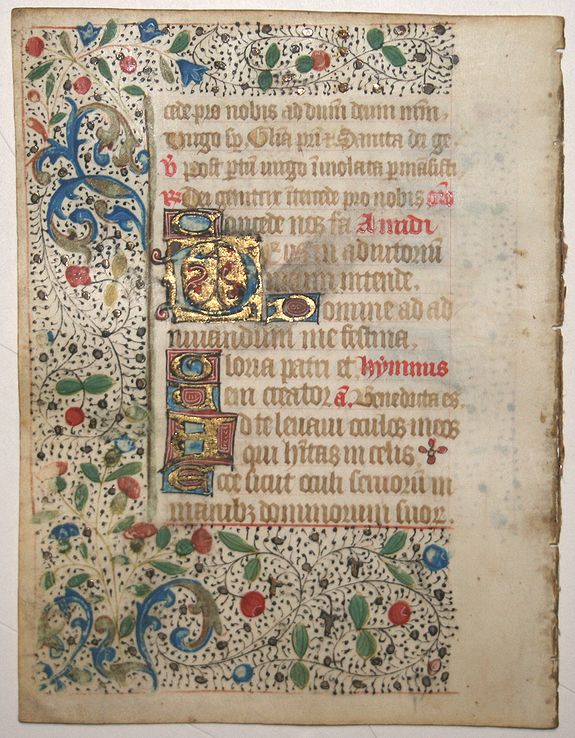 cede pro nobis ad dūm deum nr̄m,
Virgo sp̄. Gl̄ia pr̄i ⁊ Sancta dei ge.
v̄ Post ptū uirgo īuiolata p̄māsisti
R̄ Dei genitrix ītercede pro nobis or̄o
Concede nos fa A midi
Deus in adiutoriū
meum intende,
Domine ad ad
iuuandum me festina,
Gloria patri et, hymnus
Mem creator a, Benedicta es
Ad te leuaui oculos meos
qui h̄itas in celis
Ecce sicut oculi seruorū in
manibꝫ dominorum suor.